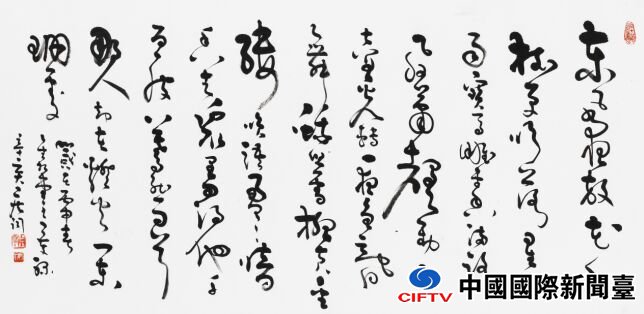 东风夜放花千
树更吹落星
如雨宝马雕车香满路
凤箫声动
玉壶光转一夜鱼龙
舞蛾儿雪柳黄金
缕笑语盈盈暗
香去众里寻他千
百度蓦然回首
那人却在灯火阑
珊处
CIFTV
中國國際新聞臺